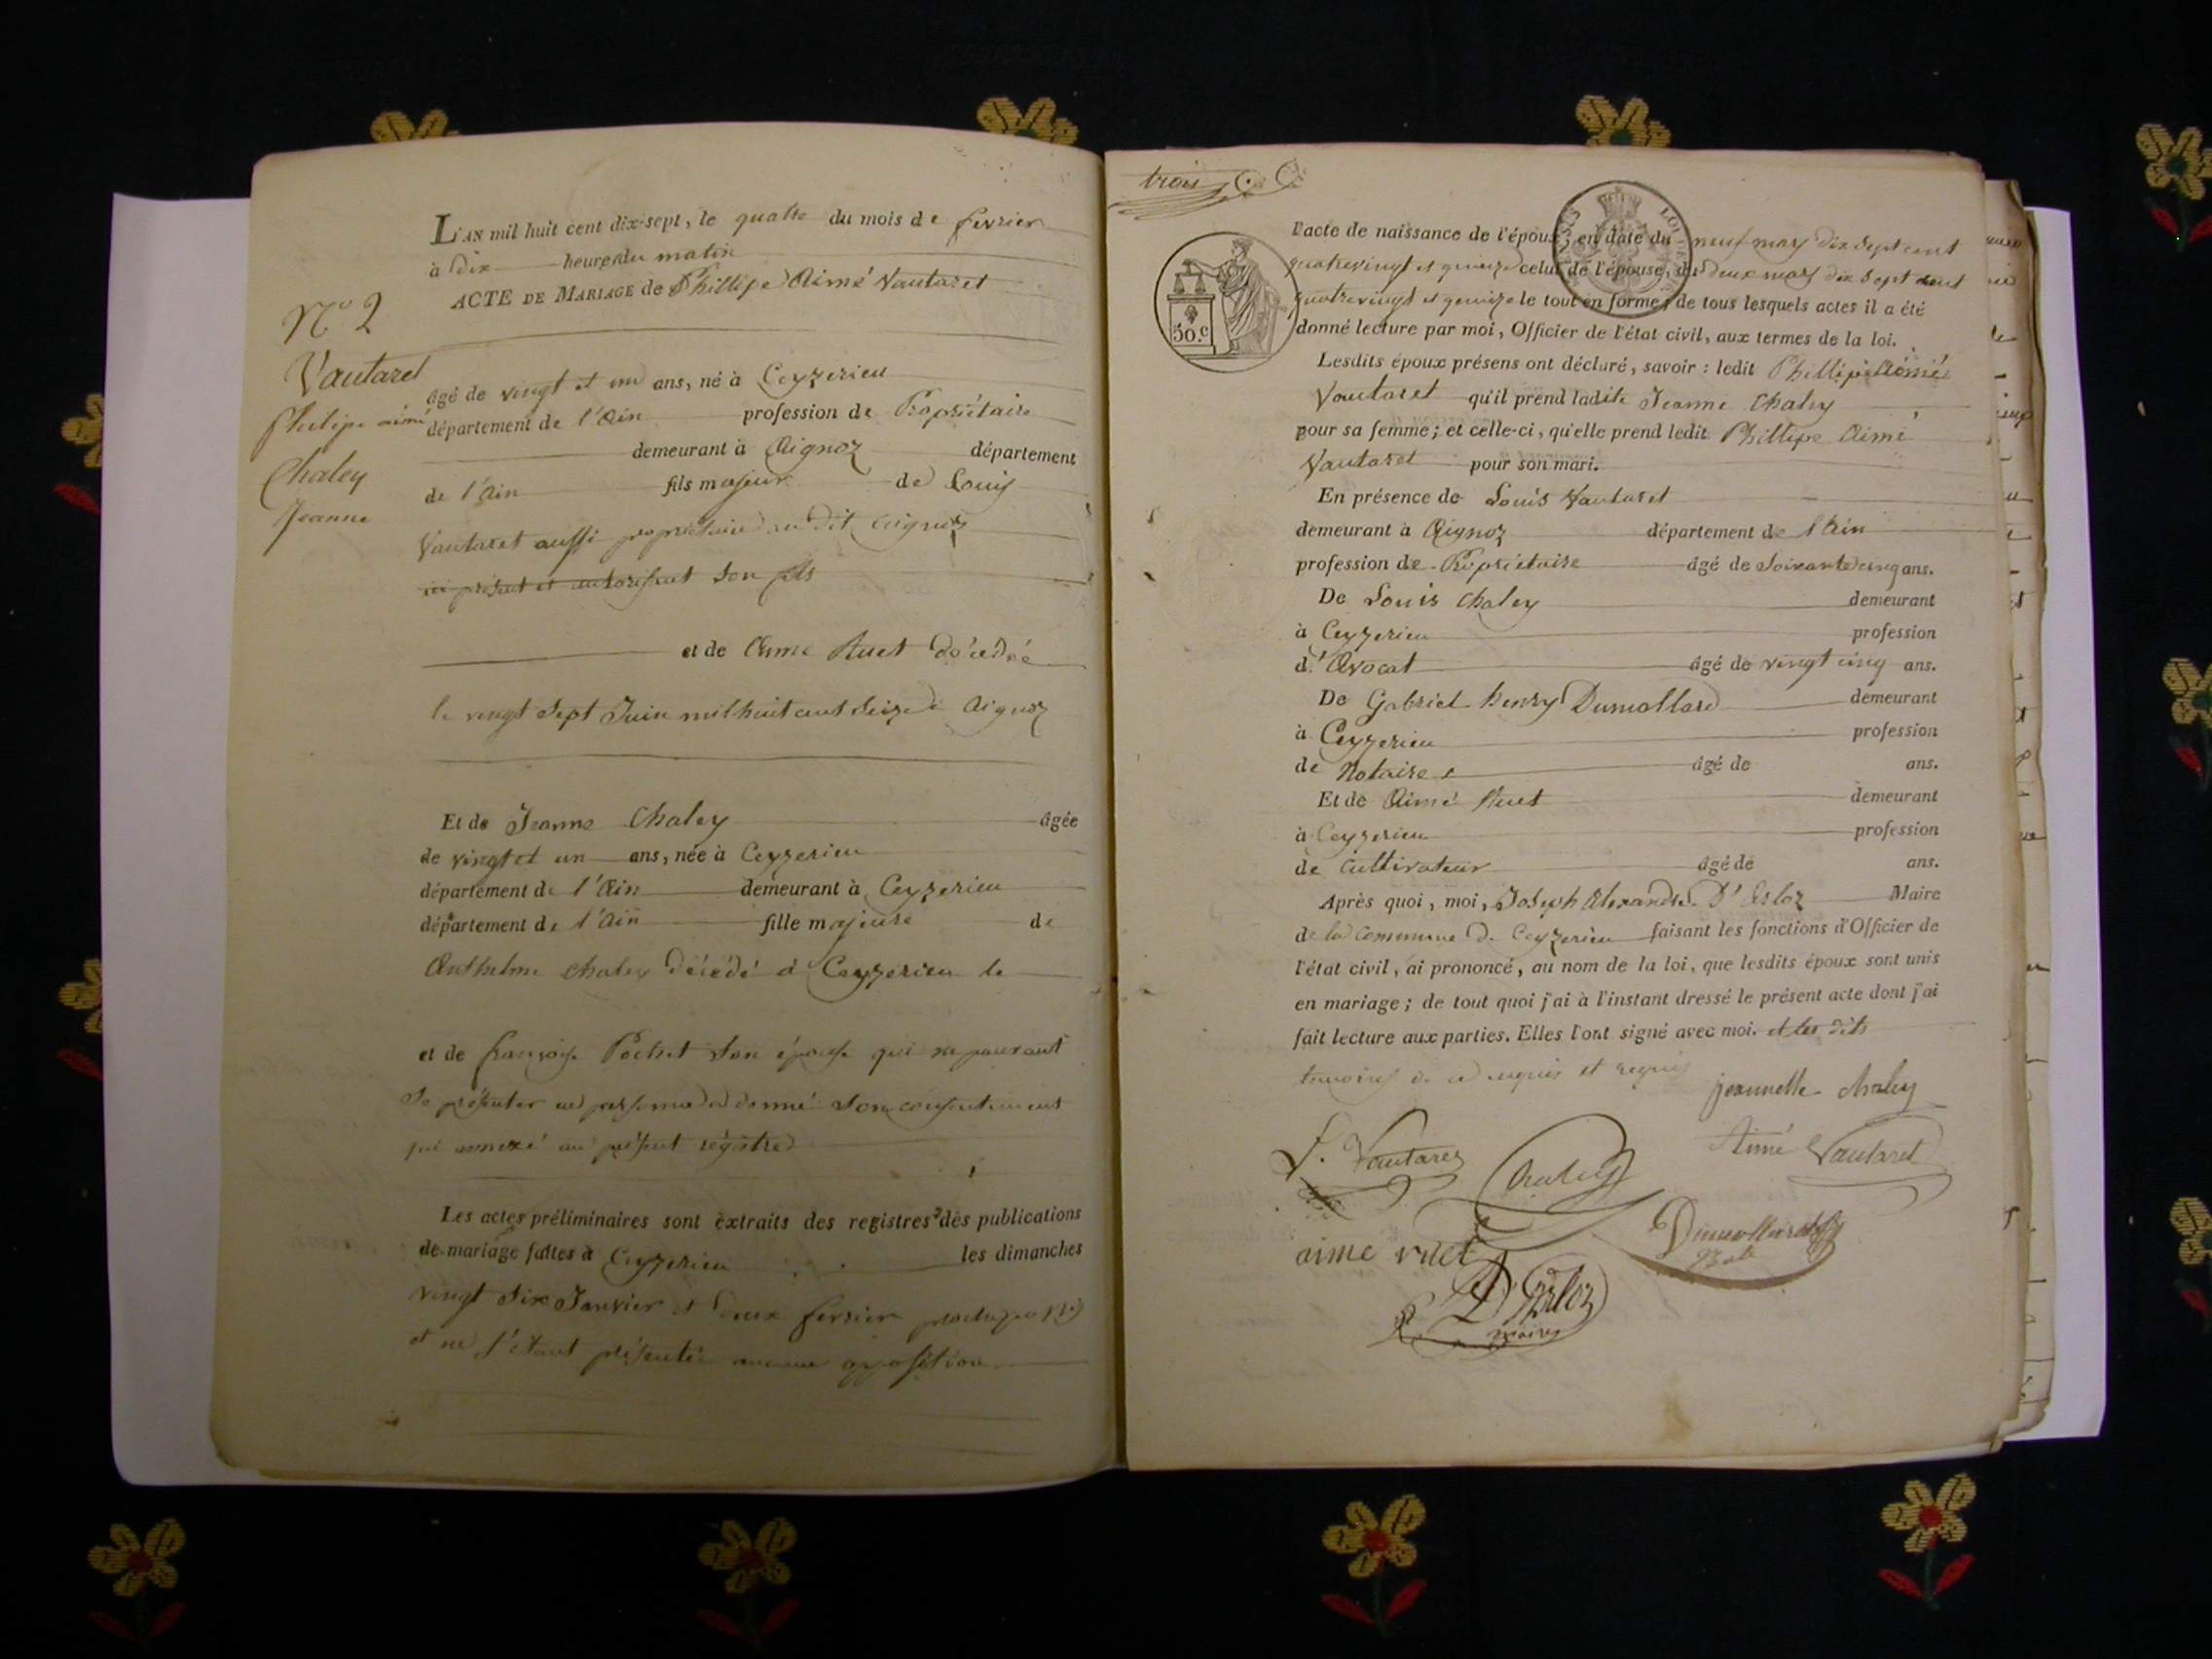 L'AN mil huit cent dix-sept, le quatre du mois de fevrier
à dix heures du matin
ACTE DE MARIAGE de Phillipe Aimé Vautaret
N° 2
Vautaret
Philipe aimé
Chaley
Jeanne
âgé de vingt et un ans, né à Ceyzerieu
département de l'Ain profession de Propriétaire
demeurant à Aignoz département
de l'Ain fils majeur de Louis
Vautaret aussi propriétaire au dit Aignoz
ici présent et autorisant son fils
et de Anne Ruet décédée
le vingt sept Juin mil huit cent seize à Aignoz
Et de Jeanne Chaley âgée
de vingt et un ans, née à Ceyzerieu
département de l'Ain demeurant à Ceyzerieu
département de l'Ain fille majeure de
Anthelme Chaley décédé à Ceyzerieu le
et de françoise Pochet son épouse qui ne pouvant
se présenter en personne a donné son consentement
qui annexé au présent régistre
Les actes préliminaires sont extraits des registres des publications
de mariage faites à Ceyzerieu les dimanches
vingt six Janvier et deux fevrier
et ne s'étant présentée aucune opposition
trois
50.c
l'acte de naissance de l'époux, en date du neuf mars dix sept cent
quatrevingt et quinze celui de l'épouse, du deux mars dix sept cent
quatrevingt et quinze le tout en forme; de tous lesquels actes il a été
donné lecture par moi, Officier de l'état civil, aux termes de la loi.
Lesdits époux présens ont déclaré, savoir : ledit Phillipe Aimé
Vautaret qu'il prend ladite Jeanne Chaley
pour sa femme; et celle-ci, qu'elle prend ledit Phillipe Aimé
Vautaret pour son mari.
En présence de Louis Vautaret
demeurant à Aignoz département de l'Ain
profession de Propriétaire âgé de Soixante cinq ans.
De Louis Chaley demeurant
à Ceyzerieu profession
d'Avocat âgé de vingt cinq ans.
De Gabriel henry Dumollard demeurant
à Ceyzerieu profession
de Notaire âgé de ans.
Et de Aimé Ruet demeurant
à Ceyzerieu profession
de Cultivateur âgé de ans.
Après quoi, moi, Joseph Alexandre D'Arloz Maire
de la Commune de Ceyzerieu faisant les fonctions d'Officier de
l'état civil, ai prononcé, au nom de la loi, que lesdits époux sont unis
en mariage; de tout quoi j'ai à l'instant dressé le présent acte dont j'ai
fait lecture aux parties. Elles l'ont signé avec moi. et les dits
temoins de ce enquis et requis
jeannette chaley
L. Vautaret
Chaley
Aimé Vautaret
Dumollard
aime ruet
D'Arloz
maire